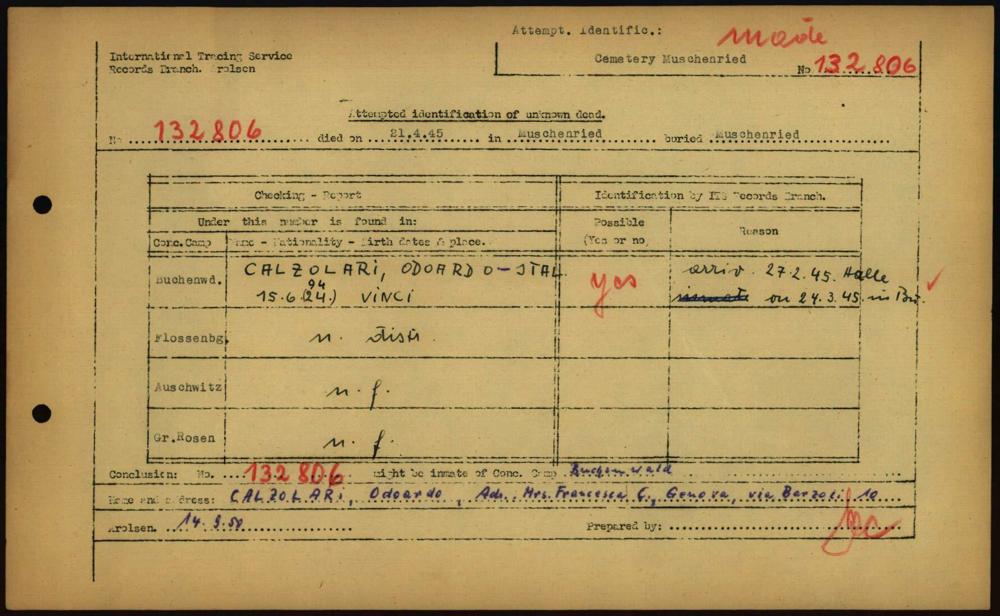 Attempt. Identific.: made
International Tracing Service
Records Branch. Arolsen
Cemetery Muschenried
No 132 806
Attempted identification of unknown dead.
No 132806 died on 21.4.45 in Muschenried buried Muschenried
Checking - Report
Identification by ITS Records Branch.
Under this number is found in:
Possible
(Yes or no)
Reason
Conc.Camp Name - Nationality - Birth dates & place.
Buchenwd. CALZOLARI, ODOARDO - ITAL. yes arriv. 27.2.45. Halle
15.6 (24.) 94 VINCI inmate on 24.3.45. in
Flossenbg. n.
Auschwitz n. f.
Gr.Rosen n. f.
Conclusion: No. 132 806 might be inmate of Conc. Camp Buchenwald
Name and address: CALZOLARI, Odoardo, Adr. Mrs. Francesca C., Genova, via 10
Arolsen. 14. 9.50 Prepared by: